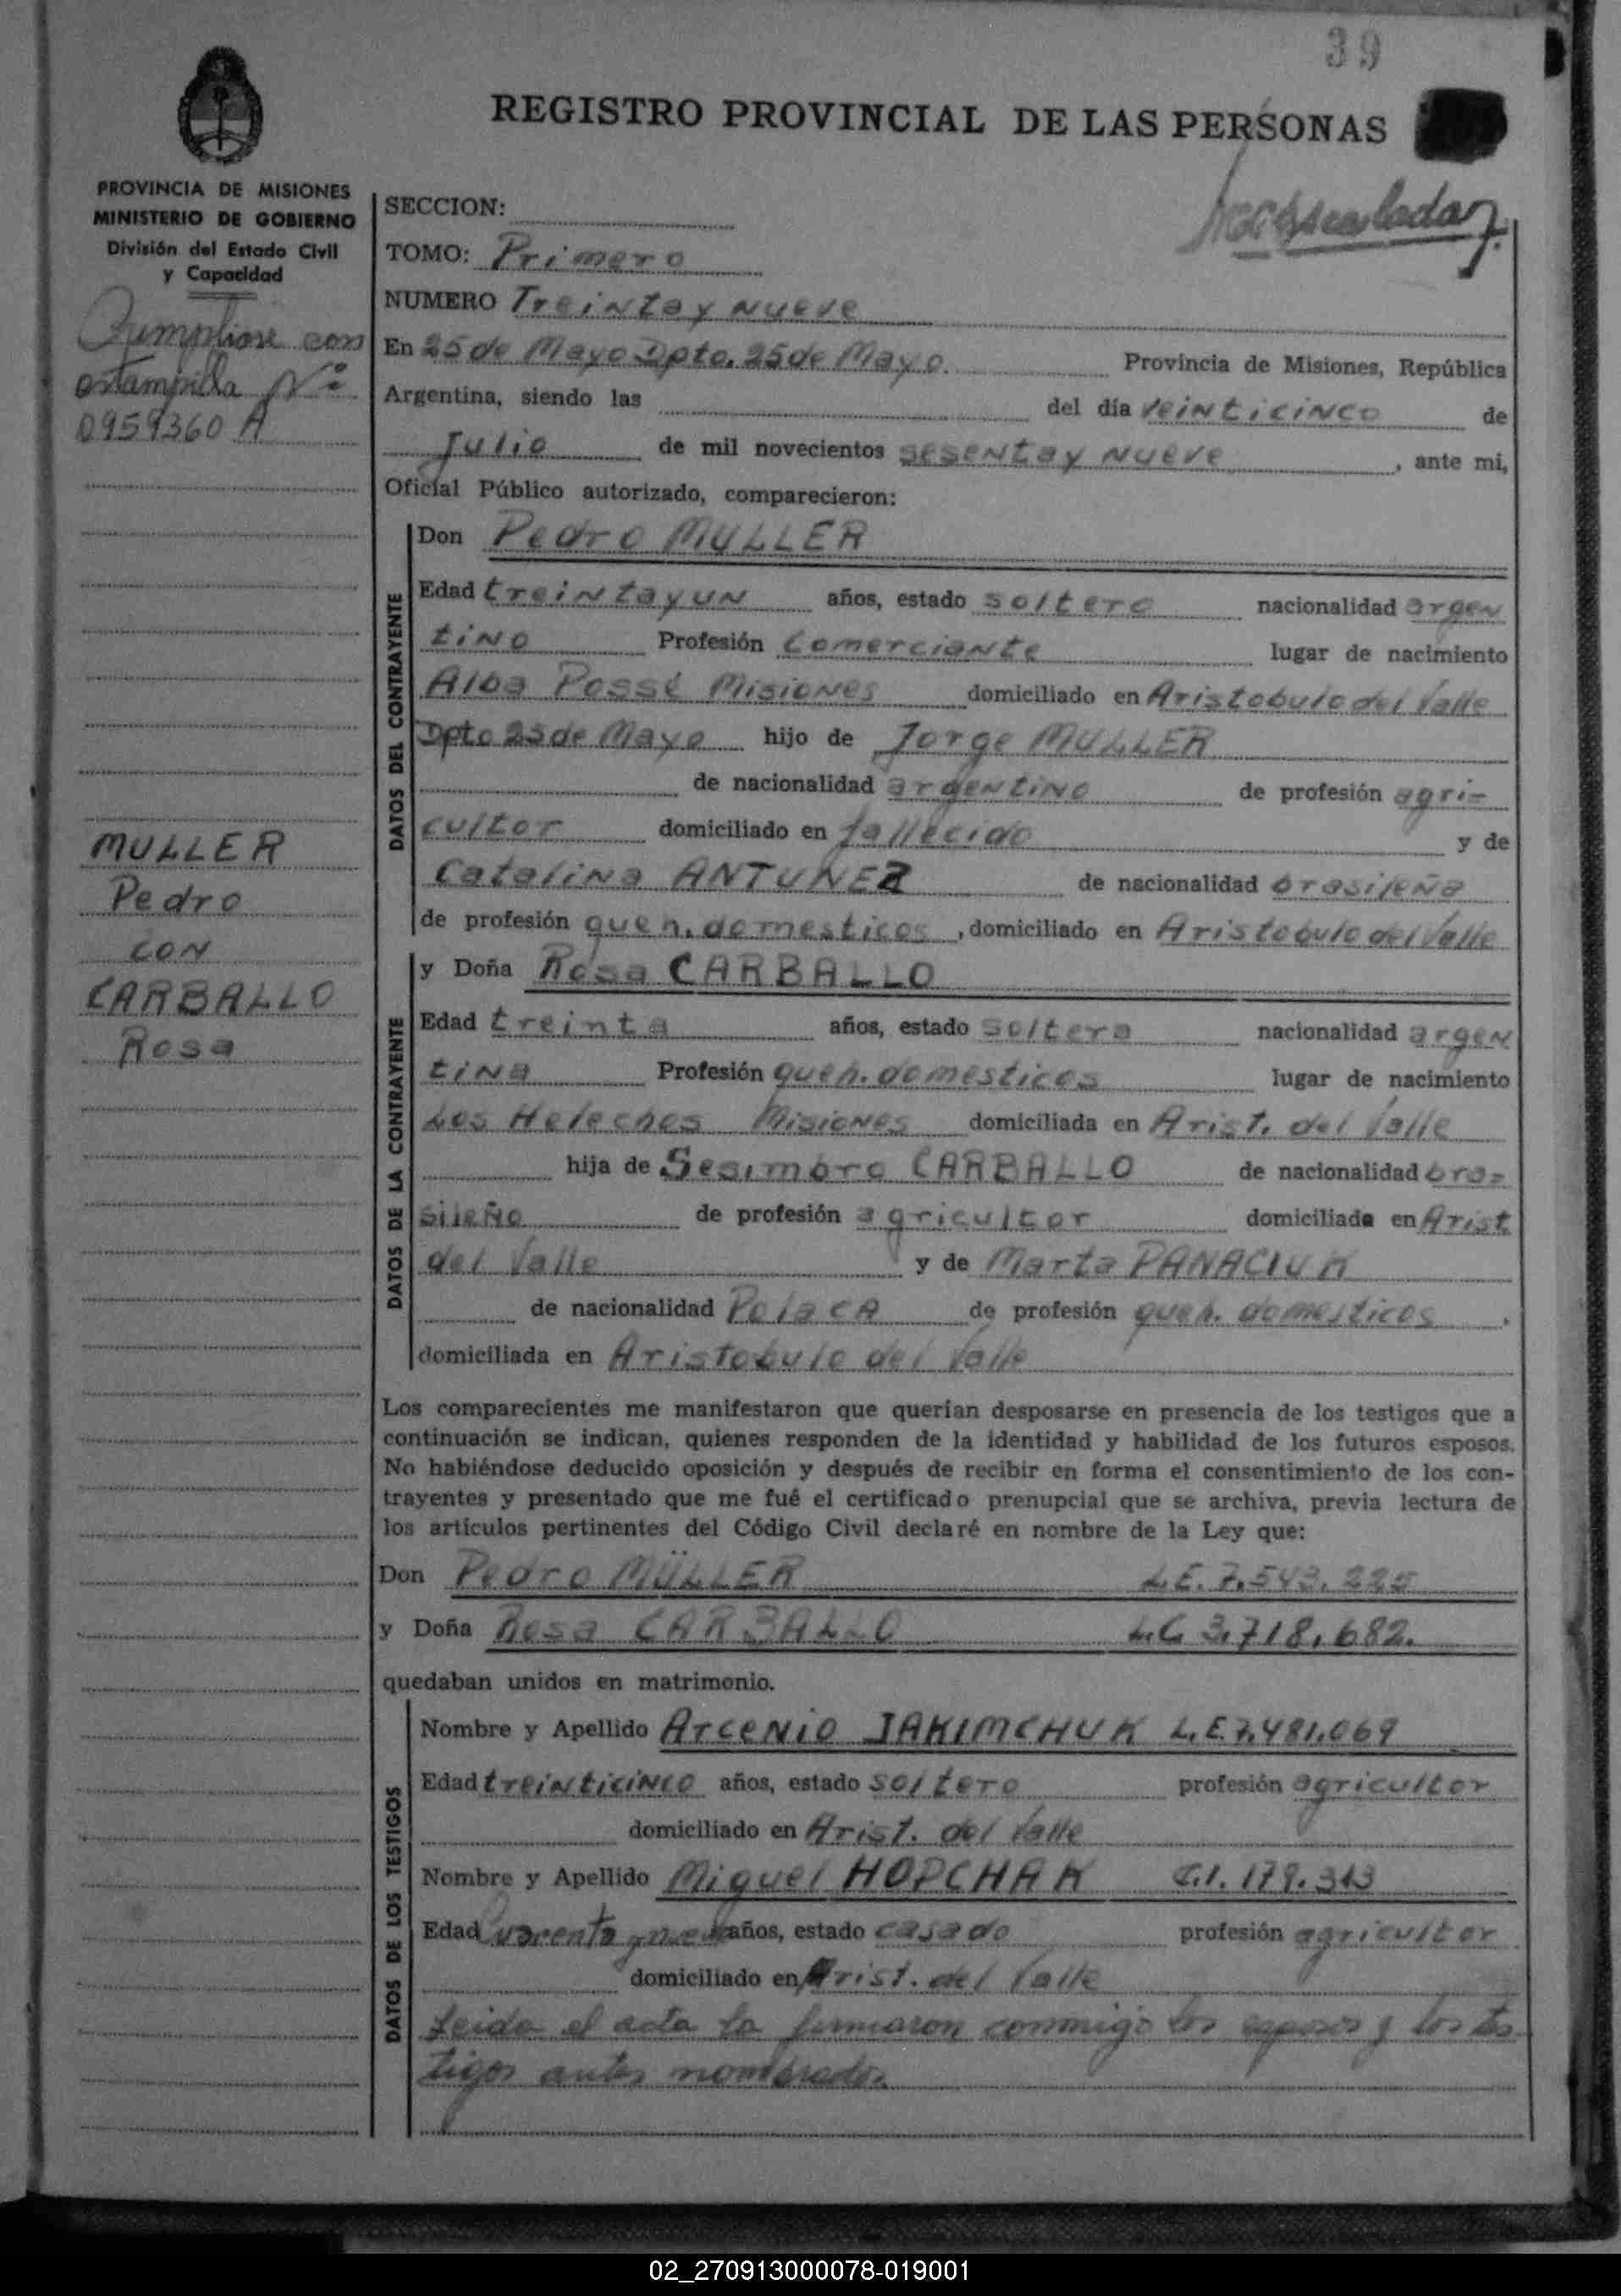 39
REGISTRO PROVINCIAL DE LAS PERSONAS
PROVINCIA DE MISIONES
MINISTERIO DE GOBIERNO
División del Estado Civil
y Capacidad
con
estampilla Nº
0959360 A
MULLER
Pedro
CON
CARBALLO
Rosa
SECCION:
TOMO: Primero
NUMERO Treinta y Nueve
En 25 de Mayo Dpto. 25 de Mayo. Provincia de Misiones, República
Argentina, siendo las del día veinticinco de
Julio de mil novecientos sesenta y Nueve, ante mi,
Oficial Público autorizado, comparecieron:
DATOS DEL CONTRAYENTE
Don Pedro MULLER
Edad treinta y un años, estado soltero nacionalidad argen
tino Profesión Comerciante lugar de nacimiento
Alba Possé Misiones domiciliado en Aristobulo del Valle
Dpto 25 de Mayo hijo de Jorge MULLER
de nacionalidad argentino de profesión agri=
cultor domiciliado en fallecido y de
Catalina ANTUNEZ de nacionalidad brasileña
de profesión queh. domesticos, domiciliado en Aristobulo del Valle
DATOS DE LA CONTRAYENTE
y Doña Rosa CARBALLO
Edad treinta años, estado soltera nacionalidad argen
tina Profesión queh. domesticos lugar de nacimiento
Los Helechos Misiones domiciliada en Arist. del Valle
hija de Sesimbro CARBALLO de nacionalidad bra=
sileño de profesión agricultor domiciliada en Arist
del Valle y de Marta PANACIUK
de nacionalidad PolacA de profesión queh. domesticos.
domiciliada en Aristobulo del Valle
Los comparecientes me manifestaron que querían desposarse en presencia de los testigos que a
continuación se indican, quienes responden de la identidad y habilidad de los futuros esposos.
No habiéndose deducido oposición y después de recibir en forma el consentimiento de los con-
trayentes y presentado que me fué el certificado prenupcial que se archiva, previa lectura de
los artículos pertinentes del Código Civil declaré en nombre de la Ley que:
Don Pedro MÜLLER L.E. 7.543.225
y Doña Rosa CARBALLO L.C 3.718.682.
quedaban unidos en matrimonio.
DATOS DE LOS TESTIGOS
Nombre y Apellido Arcenio JAKIMCHUK L.E.7.481.069
Edad treinticinco años, estado soltero profesión agricultor
domiciliado en Arist. del Valle
Nombre y Apellido Miguel HOPCHAK C.I. 179.313
Edad Cuarenta y años, estado casado profesión agricultor
domiciliado en Arist. del Valle
Leida el acta la firmaron conmigo los esposos y los tes
tigos antes nombrados
02_270913000078-019001